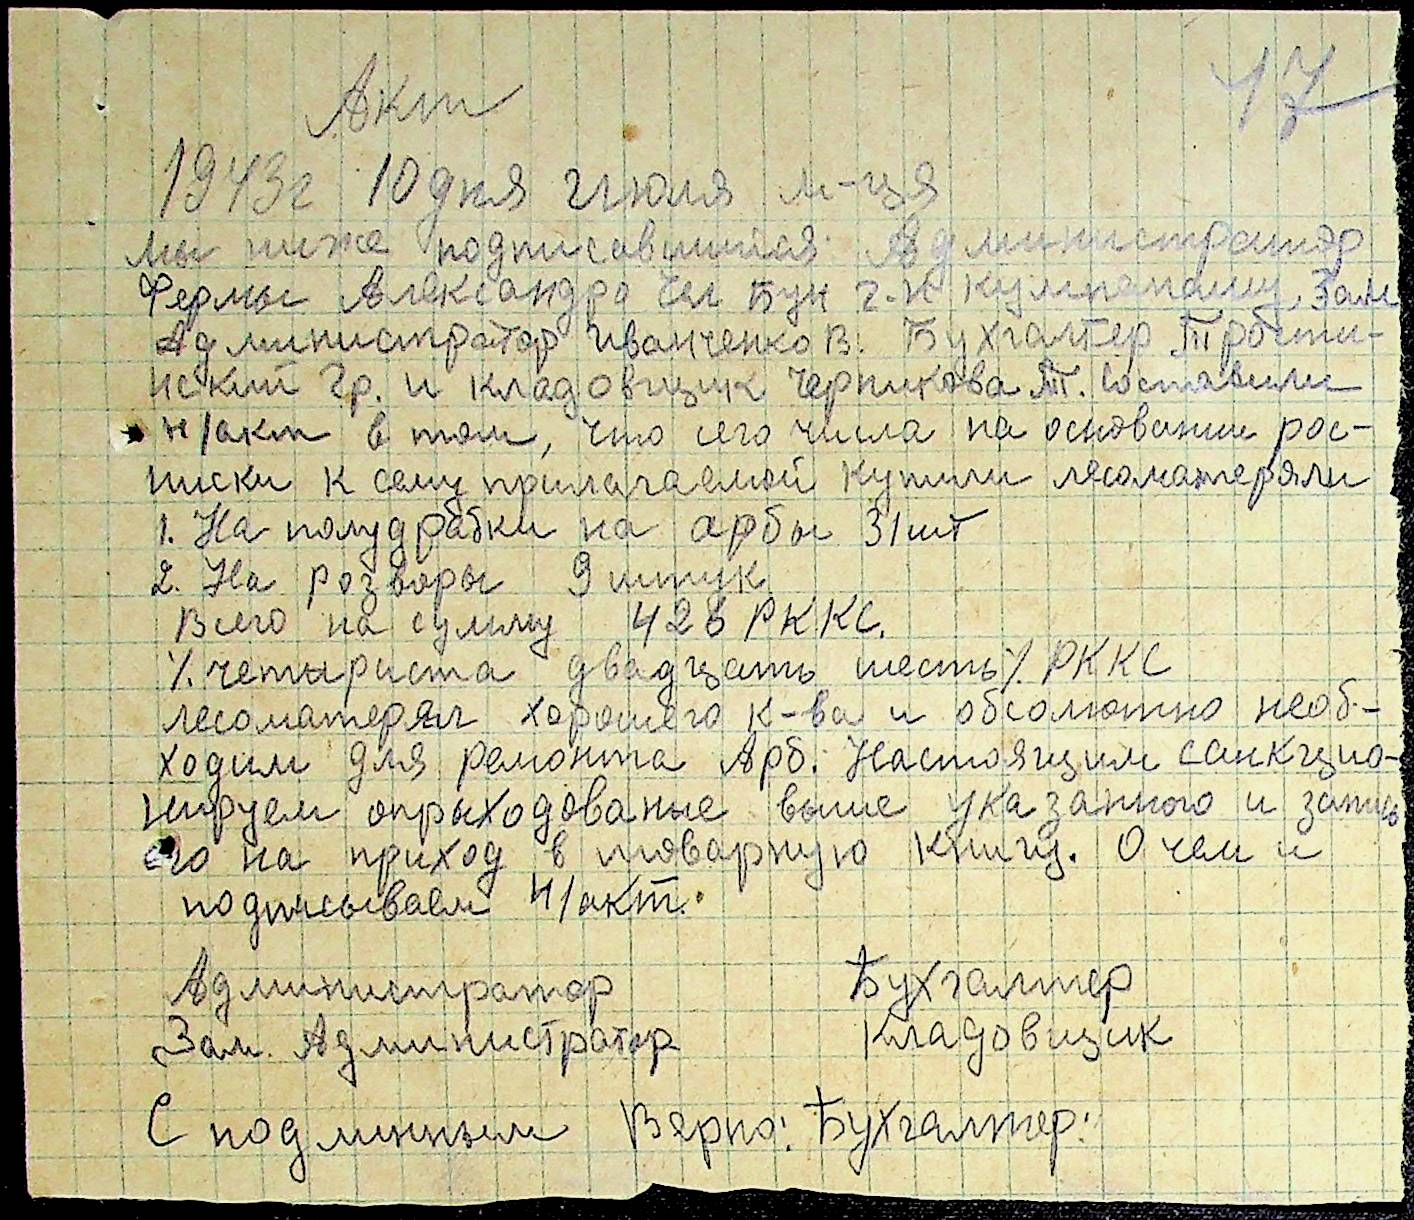 Акт
17
1943г 10 дня Июля м-ця
мы ниже подписавшийся: Администратор
Фермы Александра Чел Бун г-н Зам
Администратор Иванченко В. Бухгалтер Трости-
нский Гр. и кладовщик Черникова Т. составили
н/акт в том, что сего числа на основании рос-
писки к сему прилагаемой купили лесоматеряли
1. На полудрабки на арбы 31 шт
2. На розворы 9 штук
Всего на сумму 426 РККС.
٪. четыриста двадцать шесть ٪. РККС
лесоматерял хорошего к-ва и обсолютно необ-
ходим для ремонта Арб. Настоящим санкцио-
нируем опрыходованые выше указанного и запись
его на приход в товарную книгу. О чем и
подписываем н/акт.
Администратор Бухгалтер
Зам. Администратор Кладовщик
С подлинным Верно: Бухгалтер: